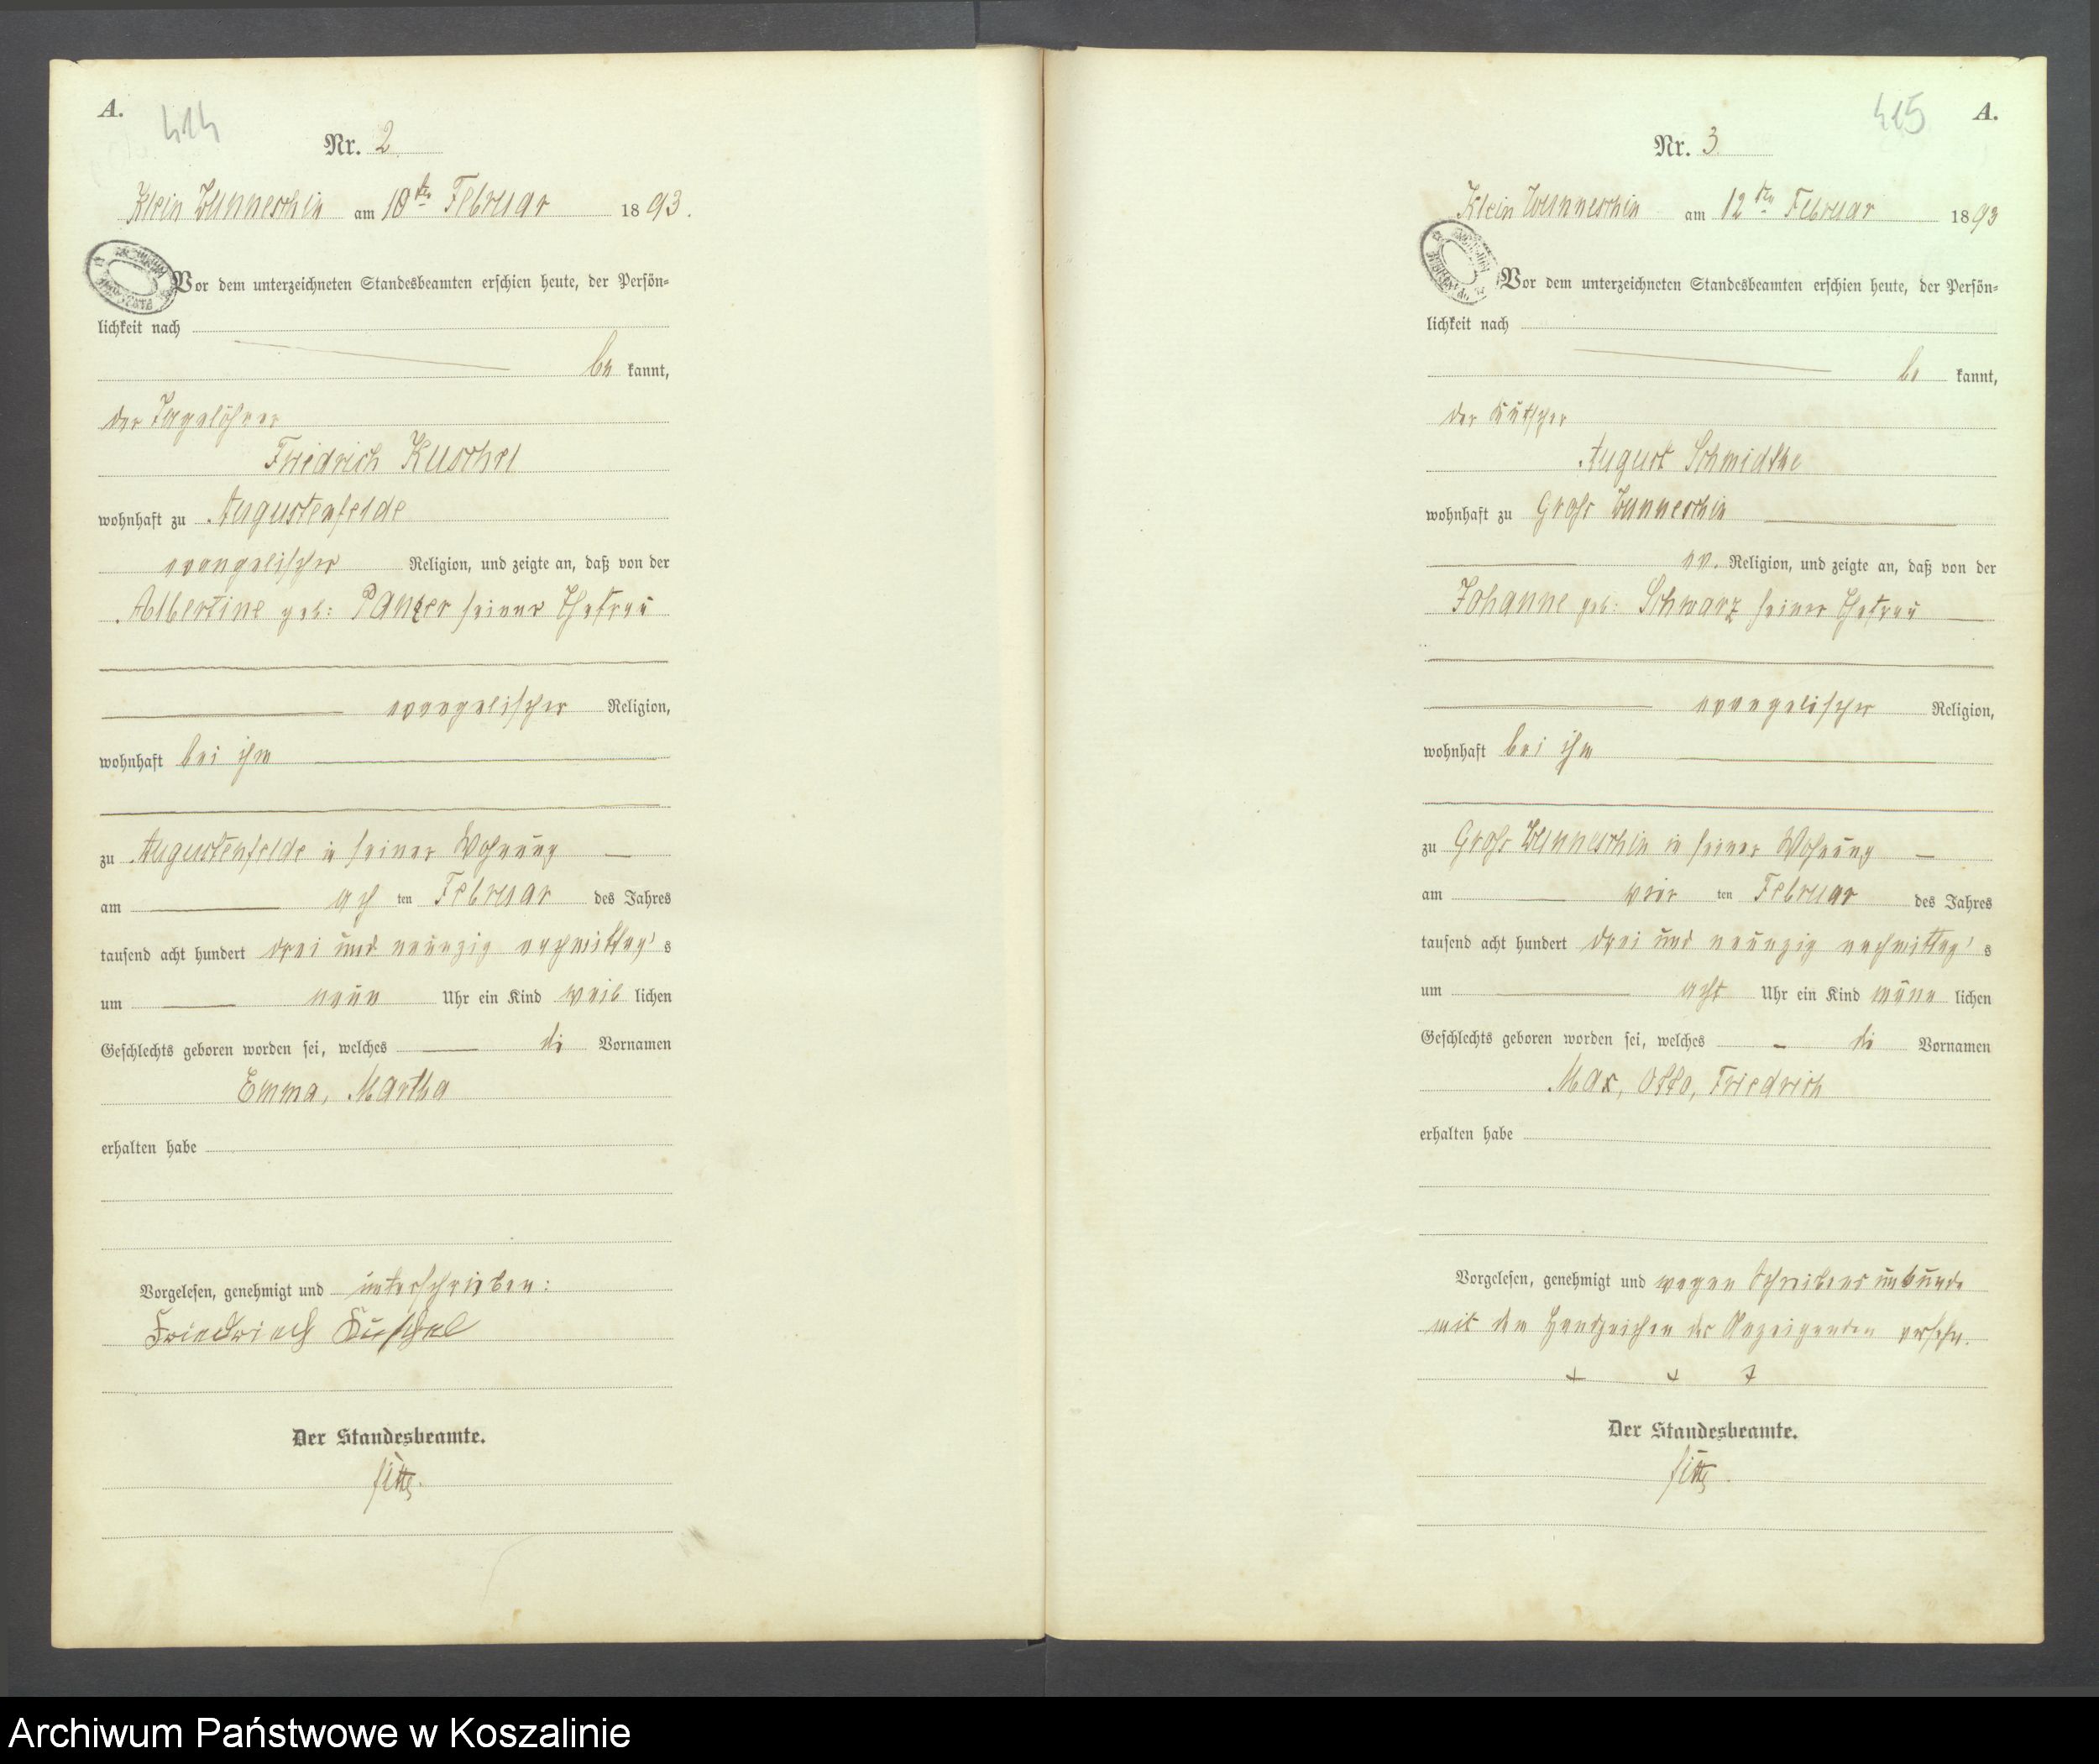 A.
414
Nr. 2.
Klein Wunneschin am 10ten Februar 1893.
Vor dem unterzeichneten Standesbeamten erschien heute, der Persön-
lichkeit nach
be kannt,
der Tagelöhner
Friedrich Kuschel
wohnhaft zu Augustenfelde
evangelischer Religion, und zeigte an, daß von der
Albertine geb: Panzer seiner Ehefrau
evangelischer Religion,
wohnhaft bei ihm
zu Augustenfelde in seiner Wohnung
am ach ten Februar des Jahres
tausend acht hundert drei und neunzig nachmittag's
um neun Uhr ein Kind weib lichen
Geschlechts geboren worden sei, welches die Vornamen
Emma, Martha
erhalten habe
Vorgelesen, genehmigt und unterschrieben:
Friedrich Kuschel
Der Standesbeamte.
415
A.
Nr. 3.
Klein Wunneschin am 12ten Februar 1893
Vor dem unterzeichneten Standesbeamten erschien heute, der Persön-
lichkeit nach
be kannt,
der Kutscher
August Schmidtke
wohnhaft zu Groß Wunneschin
ev. Religion, und zeigte an, daß von der
Johanne geb: Schwarz seiner Ehefrau
evangelischer Religion,
wohnhaft bei ihm
zu Groß Wunneschin in seiner Wohnung
am vier ten Februar des Jahres
tausend acht hundert drei und neunzig nachmittag's
um acht Uhr ein Kind männ lichen
Geschlechts geboren worden sei, welches die Vornamen
Max, Otto, Friedrich
erhalten habe
Vorgelesen, genehmigt und wegen Schreibensunkunde
mit den Handzeichen des Anzeigenden versehn.
+ + +
Der Standesbeamte.
Archiwum Państwowe w Koszalinie